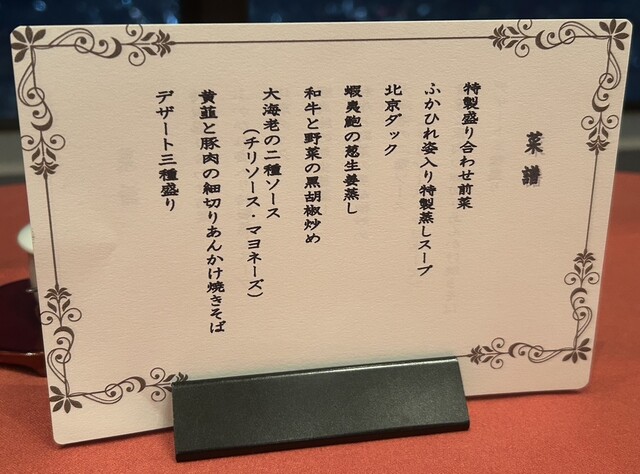 菜譜
特製盛り合わせ前菜
ふかひれ姿入り特製蒸しスープ
北京ダック
蝦夷鮑の葱生姜蒸し
和牛と野菜の黒胡椒炒め
大海老の二種ソース
(チリソース・マヨネーズ)
黄韮と豚肉の細切りあんかけ焼きそば
デザート三種盛り